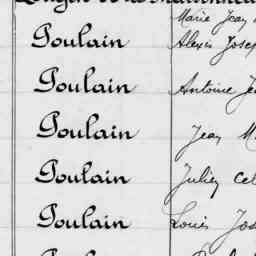 Marie Jean
Poulain Alexis Josep
Poulain Antoine Je
Poulain Jean M
Poulain Julien Cel
Poulain Louis Jos